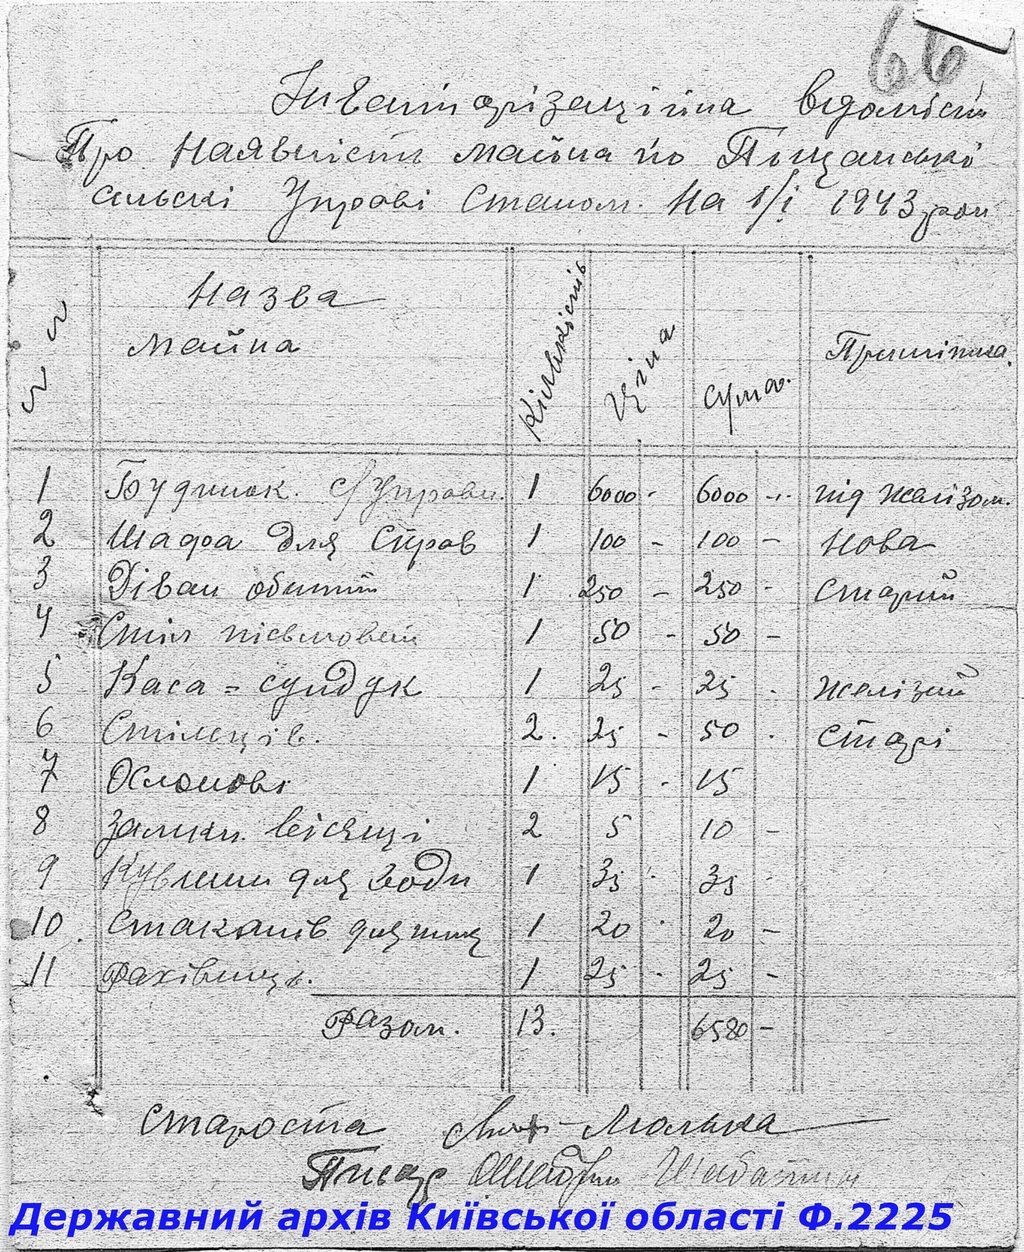 66
Інвентарізаційна відомість
Про наявність майна по Піщанські
сільскі Управі станом на 1/І 1943 рок
№ №
Назва майна
Кількість
Ціна
Сума
Примітка
1 Будинок с/Управи 1 6000 - 6000 - під желізом.
2 Шафа для справ 1 100 - 100 - нова
3 Діван обитий 1 250 - 250 - старий
4 Стіл пісьмовий 1 50 - 50 -
5 Каса = сундук 1 25 - 25 - желізний
6 Стілеців. 2. 25 - 50 - старі
7 Ослонові 1 15 - 15
8 Замки вісящі 2 5 10 -
9 Кувшин для води 1 35 - 35 -
10. Стаканів для 1 20 - 20 -
11 Рахівниць. 1 25 - 25 -
Разом. 13. 6580 -
Староста Люлька
Писар
Державний архів Київської області Ф.2225